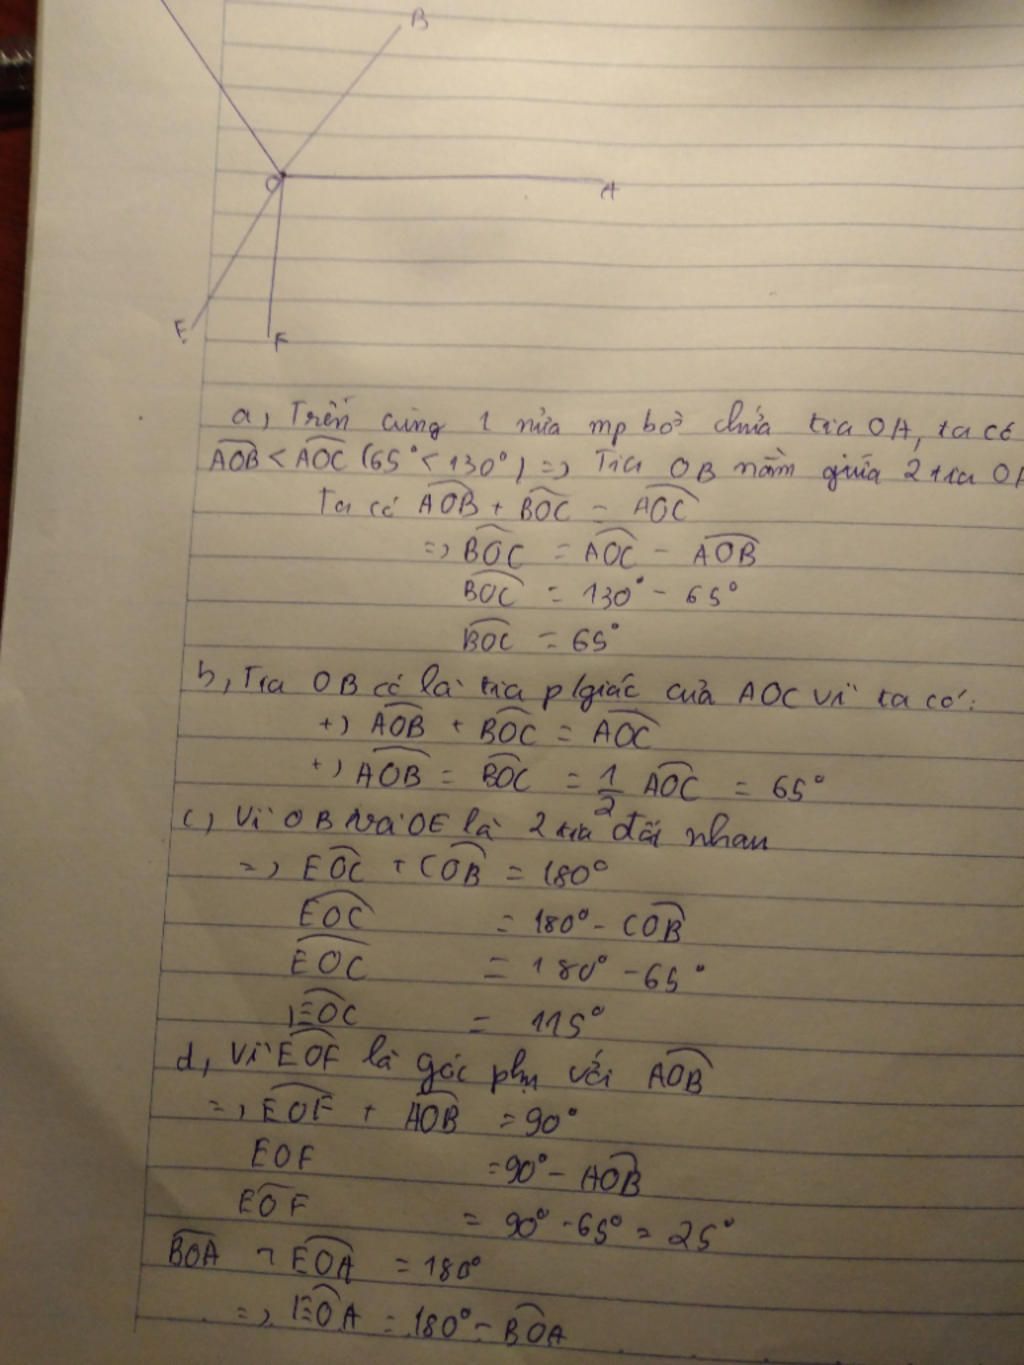 B
O
A
E
F
a, Trên cùng 1 nửa mp bờ chứa tia OA, ta có
AOB < AOC (65° < 130°) => Tia OB nằm giữa 2 tia OA
Ta có AOB + BOC = AOC
=> BOC = AOC - AOB
BOC = 130° - 65°
BOC = 65°
b, Tia OB có là tia p/giác của AOC vì ta có:
+) AOB + BOC = AOC
+) AOB = BOC = 1/2 AOC = 65°
c, Vì OB và OE là 2 tia đối nhau
=> EOC + COB = 180°
EOC = 180° - COB
EOC = 180° - 65°
EOC = 115°
d, Vì EOF là góc phụ với AOB
=> EOF + AOB = 90°
EOF = 90° - AOB
EOF = 90° - 65° = 25°
BOA + EOA = 180°
=> EOA = 180° - BOA